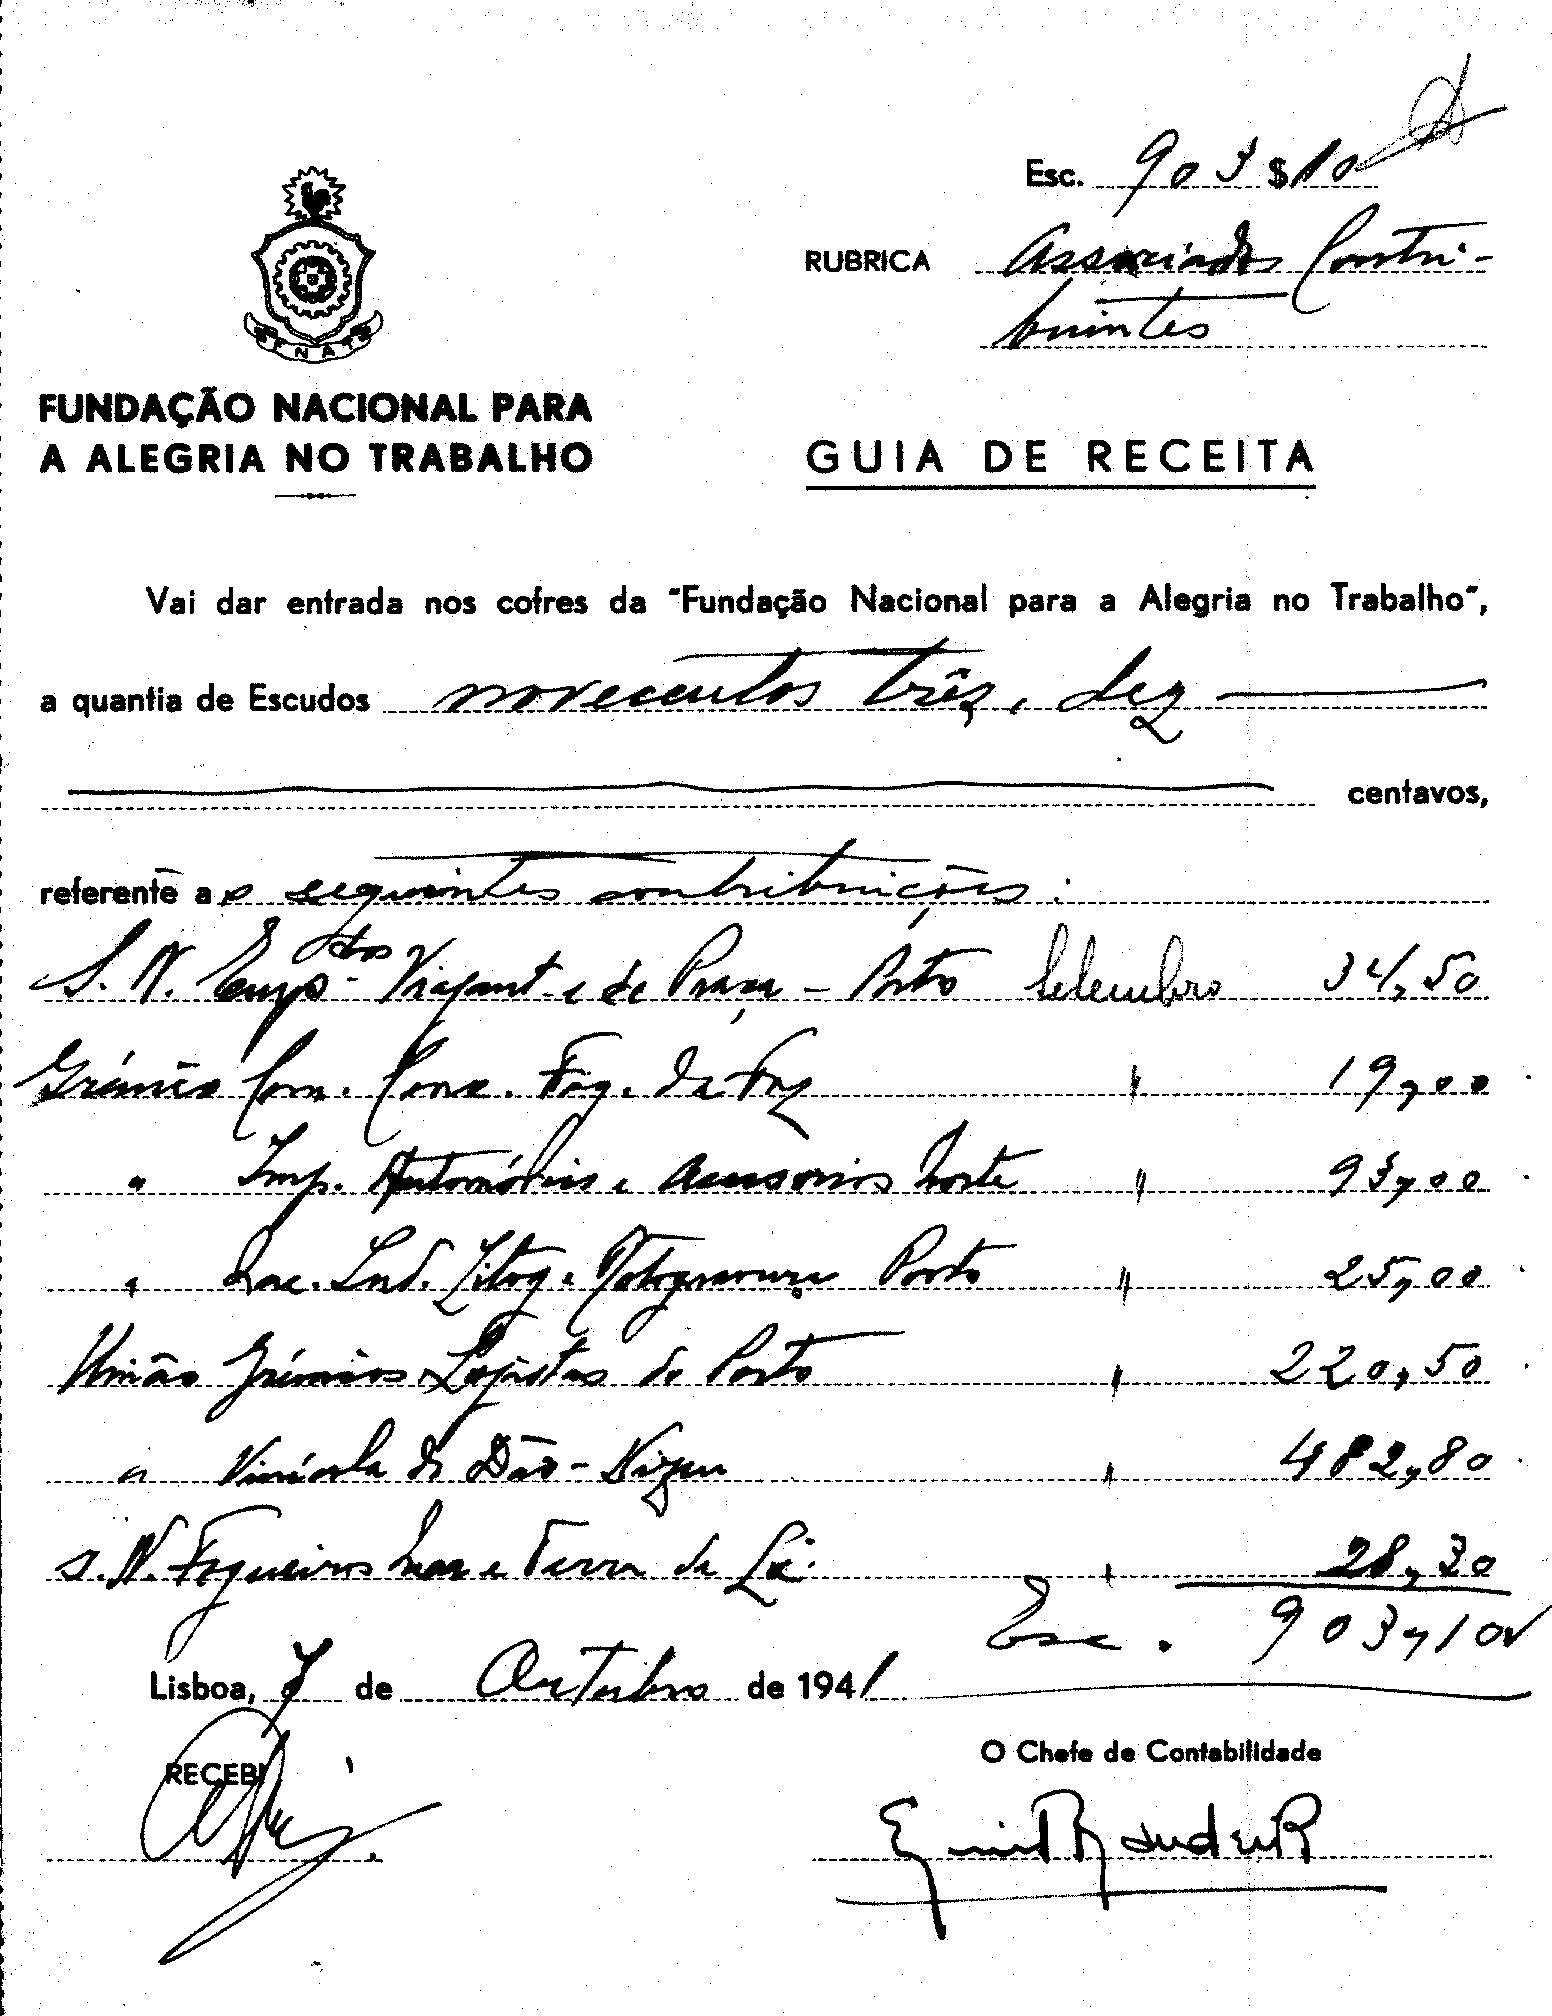 Esc. 903$10
RUBRICA Associados Contri-
buintes
F.N.A.T.
FUNDAÇÃO NACIONAL PARA
A ALEGRIA NO TRABALHO
GUIA DE RECEITA
Vai dar entrada nos cofres da "Fundação Nacional para a Alegria no Trabalho",
a quantia de Escudos novecentos três, dez
centavos,
referente as seguintes contribuições:
S. N. Empdos Viajant. e de Praça - Porto Setembro 34,50
Grémio Com. Conc. Fig. da Foz " 19,00
" Imp. Automóveis e Acessorios Norte " 93,00
" Nac. Ind. Litog. e Rotogravura Porto " 25,00
União Grémios Lojistas do Porto " 220,50
" Vinícola do Dão - Vizeu " 482,80
S. N. Fogueiros Mar e Terra de Lx. " 28,30
Esc. 903,10
Lisboa, 7 de Outubro de 1941
RECEBI
O Chefe de Contabilidade